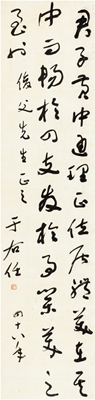 君子黄中通理正位居體美在其
中而暢於四支發於事業美之
至也 俊父先生正之 于右任
四十八年